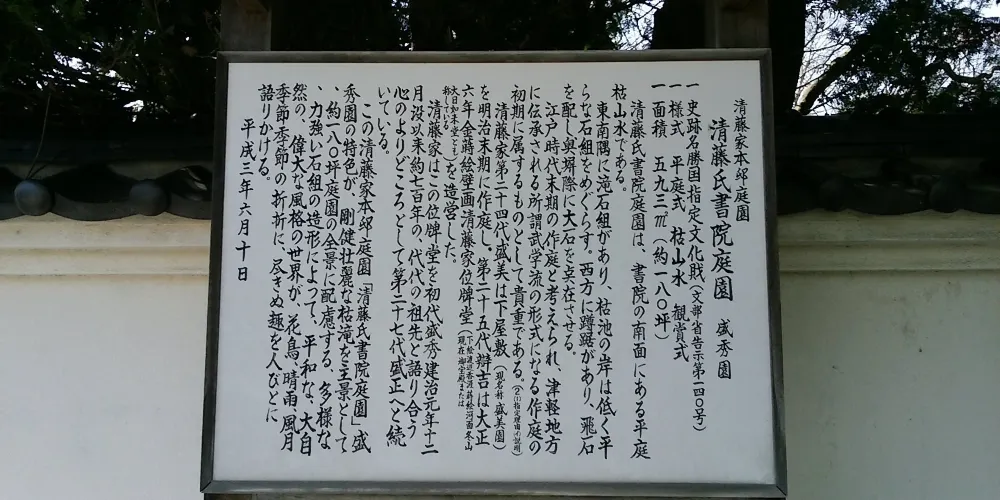 清藤家本邸庭園
清藤氏書院庭園 盛秀園
一 史跡名勝国指定文化財(文部省告示第一四〇号)
一 様式 平庭式 枯山水 観賞式
一 面積 五九三㎡(約一八〇坪)
清藤氏書院庭園は、書院の南面にある平庭
枯山水である。
東南隅に滝石組があり、枯池の岸は低く平
らな石組をめぐらす。西方に蹲踞があり、飛石
を配し奥塀際に大石を点在させる。
江戸時代末期の作庭と考えられ、津軽地方
に伝承される所謂武学流の形式になる作庭の
初期に属するものとして貴重である。
清藤家第二十四代盛美は下屋敷(現名称 盛美園)
を明治末期に作庭し、第二十五代辯吉は大正
六年金蒔絵壁画清藤家位牌堂
(現在御宝殿または
大日如来堂とも
称している)を造営した。
清藤家はこの位牌堂を初代盛秀建治元年十二
月没以来約七百年の、代代の祖先と語り合う
心のよりどころとして第二十七代盛正へと続
いている。
この清藤家本邸庭園「清藤氏書院庭園」盛
秀園の特色が、剛健壮麗な枯滝を主景として
、約一八〇坪庭園の全景に配慮する、多様な
、力強い石組の造形によって、平和な、大自
然の、偉大な風格の世界が、花鳥、晴雨、風月
季節季節の折折に、尽きぬ趣を人びとに
語りかける。
平成三年六月十日